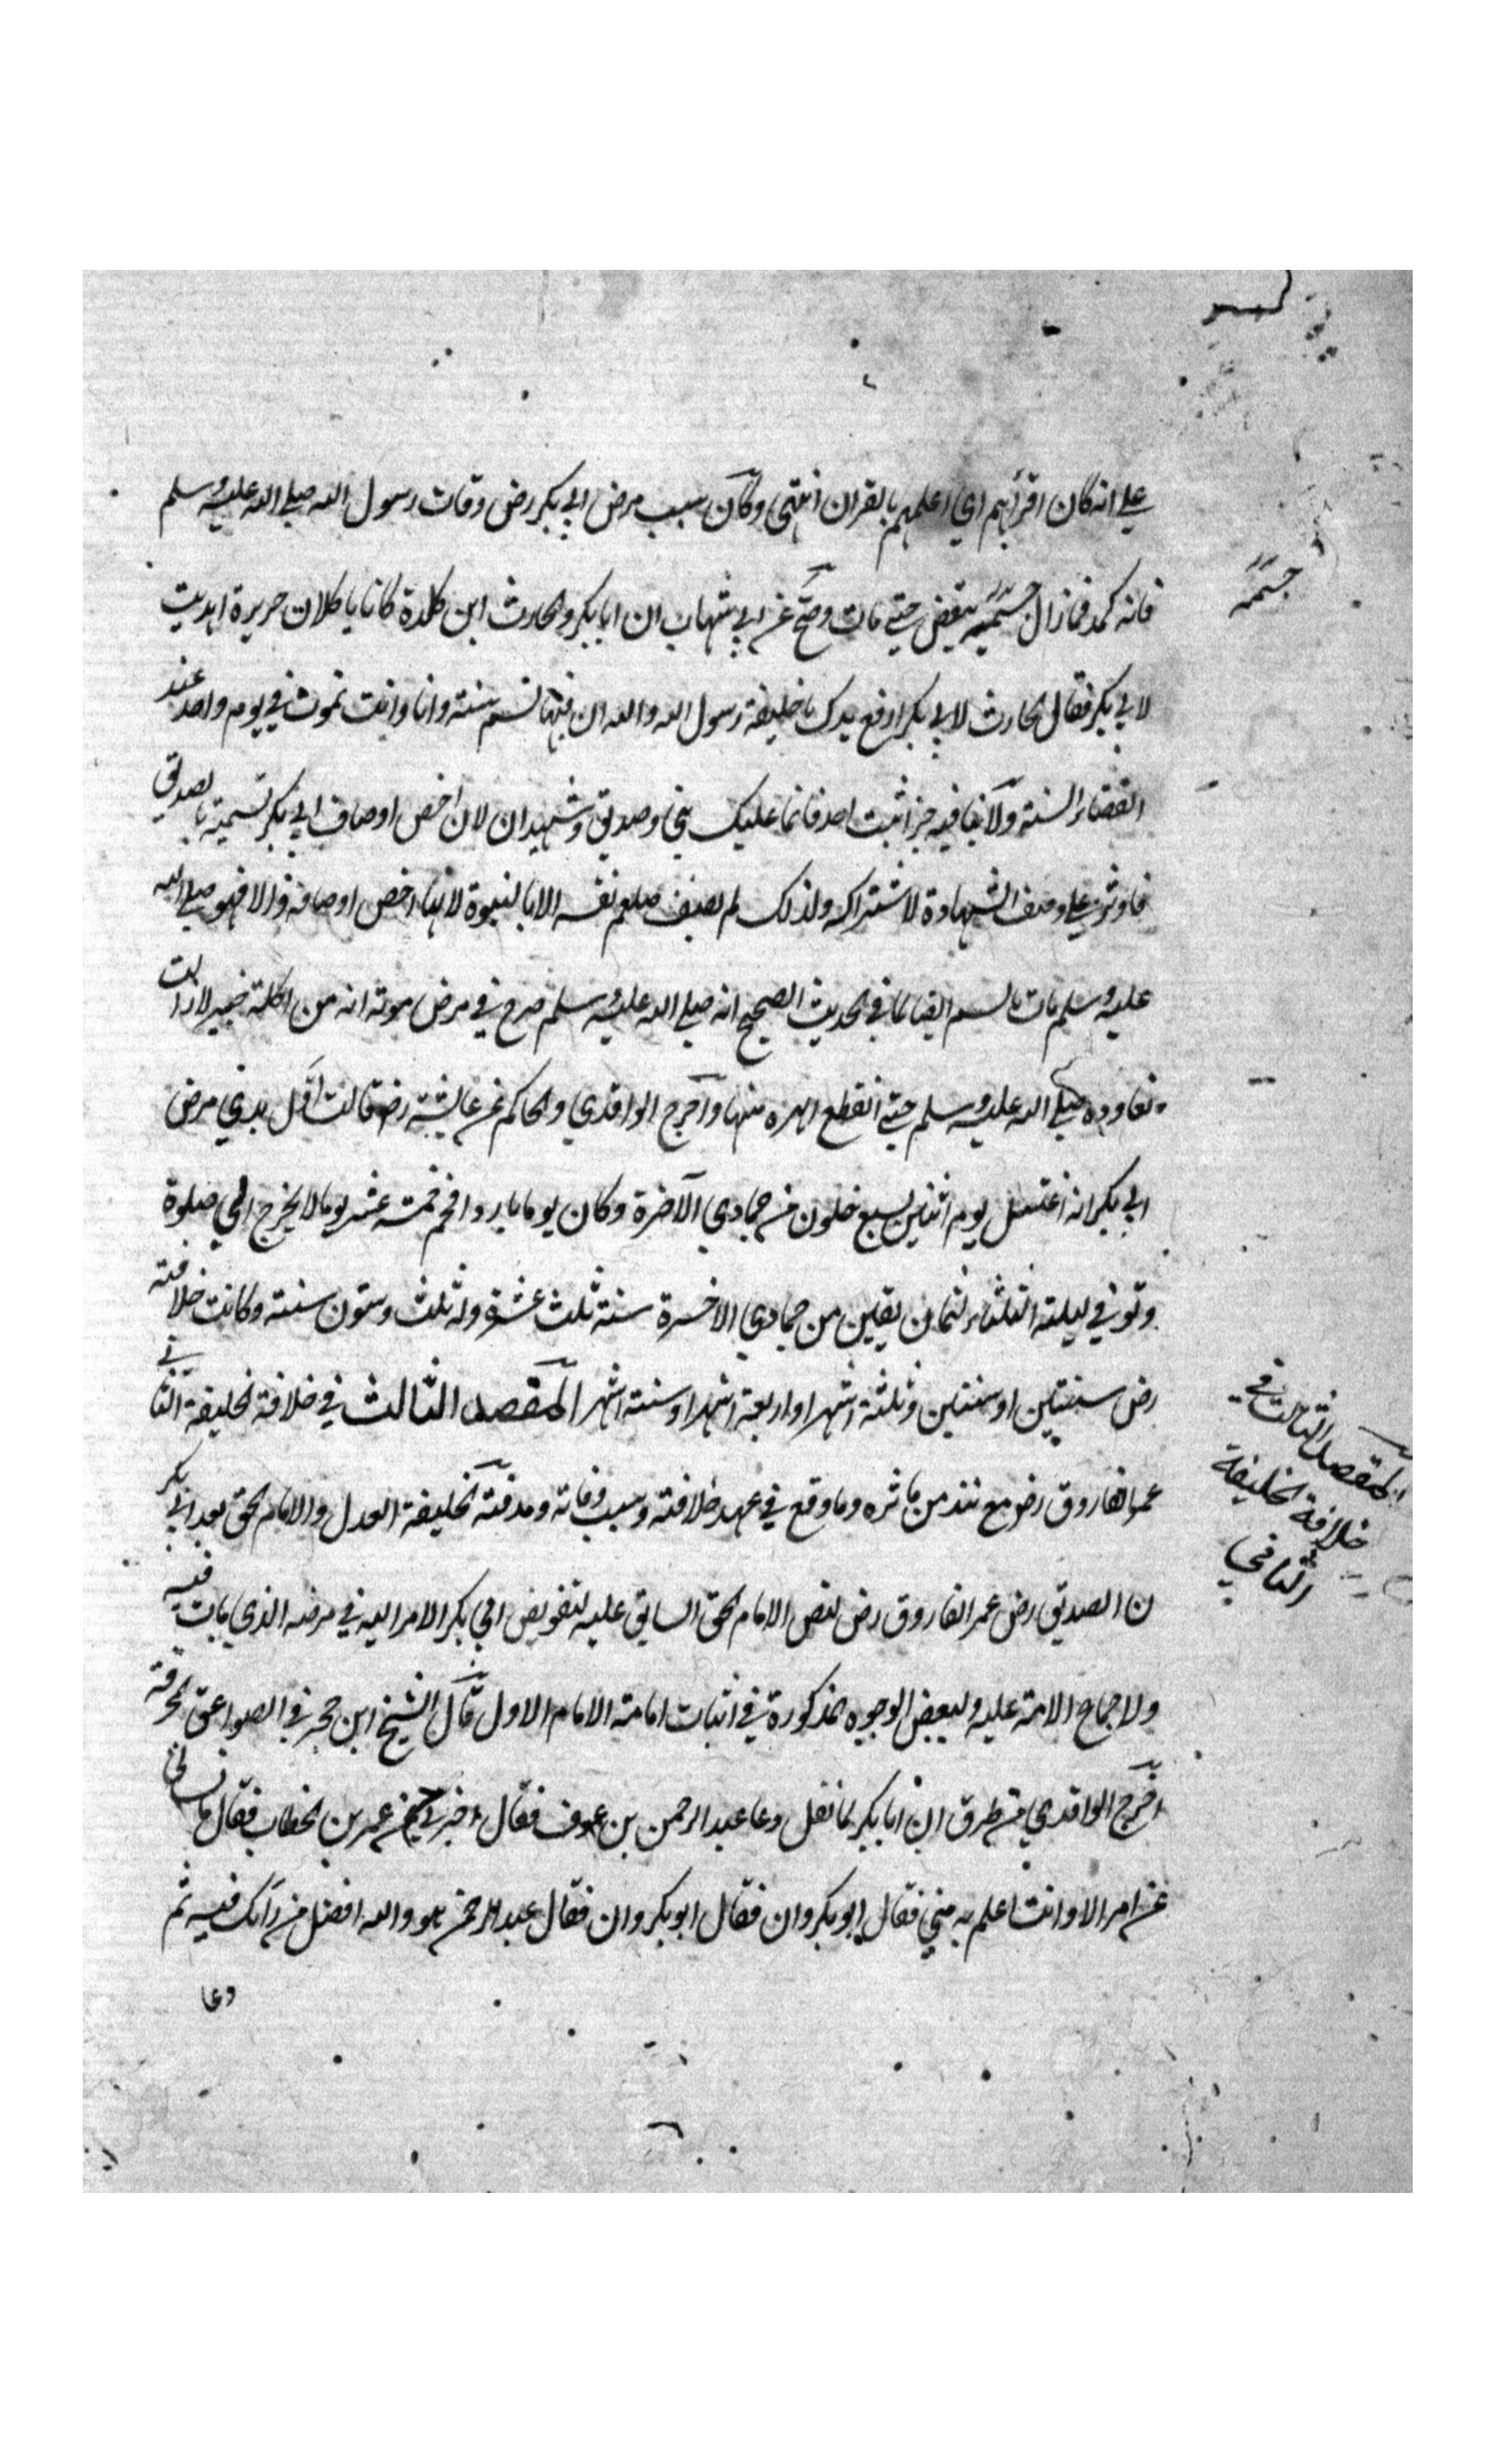 علي انه كان اقرأهم اي اعلمهم بالقران انتهى وكان سبب مرض ابي بكر رض وفات رسول الله صلي الله عليه وسلم
فانه كمد فمازال جسمه ينقض حتي مات وصح عن ابي شهاب ان ابا بكر والحارث ابن كلدة كانا ياكلان حريرة اهديت
جسمه
لابي بكر فقال الحارث لابي بكر ارفع يدك يا خليفة رسول الله والله ان فيها لسم سنة وانا وانت نموت في يوم واحد عند
انقضاء السنة ولا ينافيه خبر اثبت احد فانما عليك نبي وصديق وشهيدان لان اخص اوصاف ابي بكر تسميته بالصديق
فاوثر علي وصف الشهادة لاشتراكه ولذلك لم يصف صلعم نفسه الا بالنبوة لانها اخص اوصافه والا فهو صلي الله
عليه وسلم مات بالسم ايضا كما في الحديث الصحيح انه صلي الله عليه وسلم صرح في مرض موته انه من اكلة خيبر لا زالت
تعاوده صلي الله عليه وسلم حتي انقطع ابهره منها واخرج الواقدي والحاكم عن عايشة رضه قالت اول بدي مرض
ابي بكر انه اغتسل يوم اثنين لسبع خلون من جمادي الآخرة وكان يوما بارد افحم خمسة عشر يوما لا يخرج الي صلوة
وتوفي ليلة الثلثاء لثمان بقين من جمادي الاخرة سنة ثلث عشرة وله ثلث وستون سنة وكانت خلافته
رض سنتين او سنتين وثلثة اشهر او اربعة اشهر او ستة اشهر المقصد الثالث في خلافة الخليفة الثاني
المقصد الثالث في
خلافة الخليفة
الثاني
عمر الفاروق رض مع نبذ من ماثره وما وقع في عهد خلافته وسبب وفاته ومدفنه الخليفة العدل والامام الحق بعد ابي بكر
ن الصديق رض عمر الفاروق رض لنص الامام الحق السابق عليه لتفويض ابي بكر الامر اليه في مرضه الذي مات فيه
ولاجماع الامة عليه ولبعض الوجوه المذكورة في اثبات امامة الامام الاول قال الشيخ ابن حجر في الصواعق المحرقة
اخرج الواقدي من طرق ان ابا بكر لما ثقل دعا عبد الرحمن بن عوف فقال اخبرني عن عمر بن الخطاب فقال ما تسالني
عن امر الا وانت اعلم به مني فقال ابو بكر وان فقال ابو بكر وان فقال عبد الرحمن هو والله افضل من رايك فيه ثم
دعا